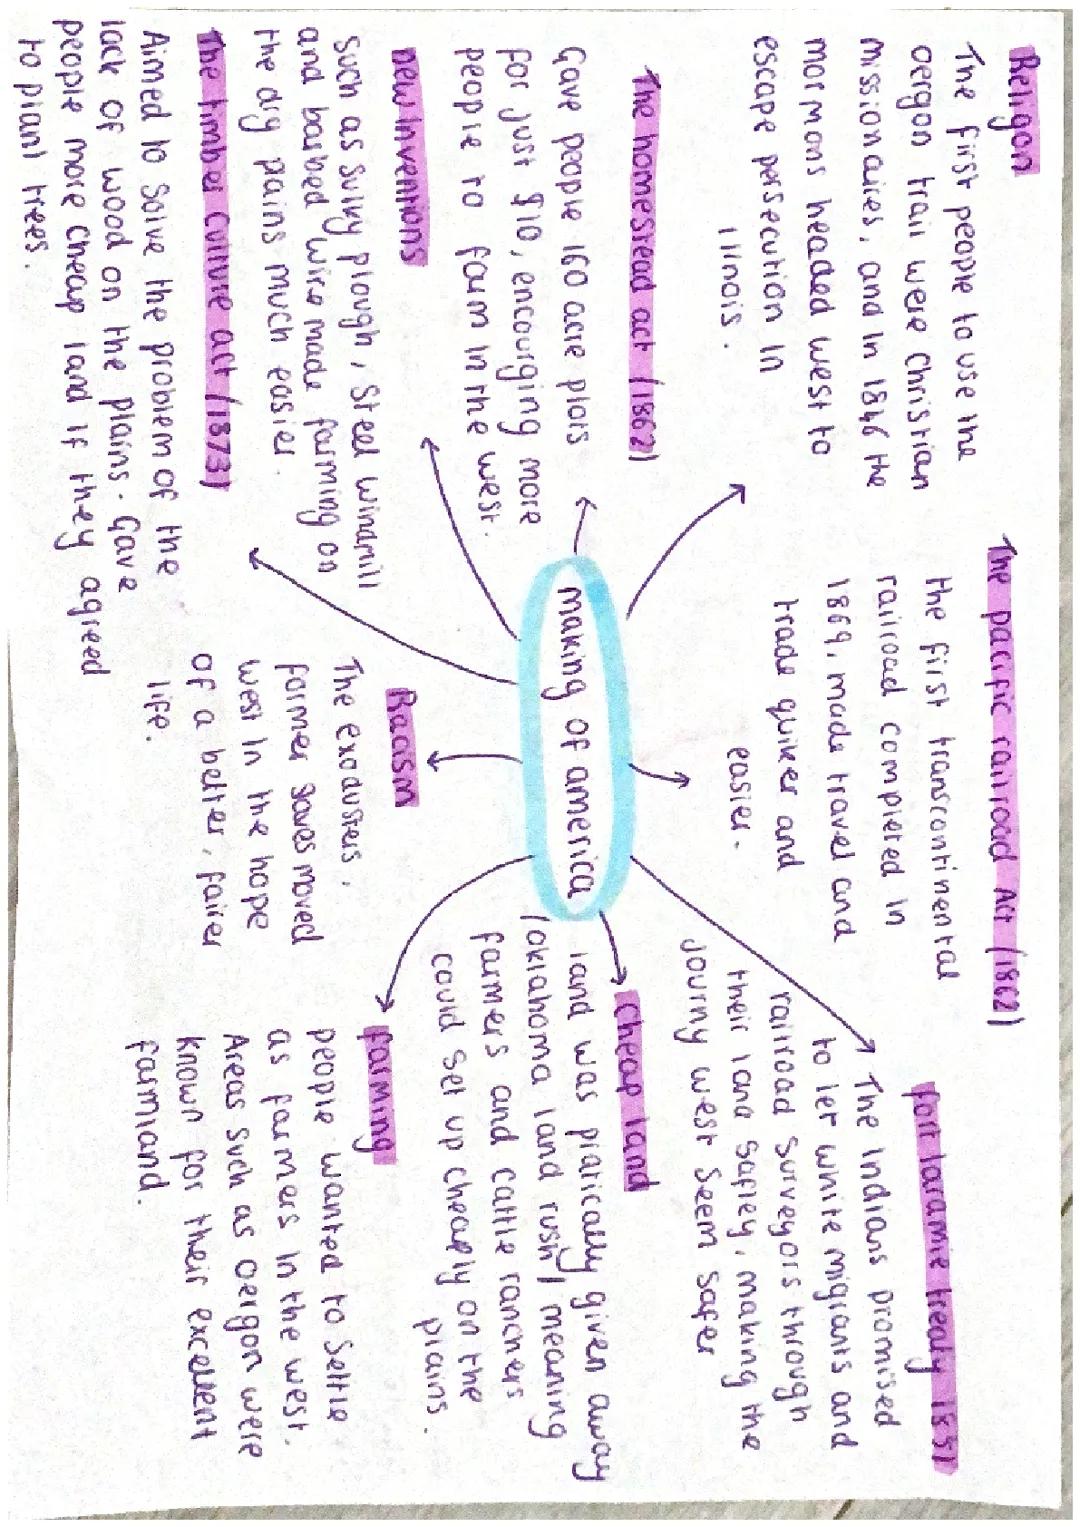 Religon
The first people to use the
oergon trail were christian
missionaires, and in 1846 the
mormons headed west to
escape persecution in
illinois.
The pacific railroad Act (1862)
the first transcontinental
railroad completed in
1869, made travel and
trade quiker and
easier.
fort laramie treaty 1851
The indians promised
to let white migrants and
railroad surveyors through
their land safley, making the
journy west seem safer
The homestead act (1862)
Gave people 160 acre plots
for just $10, encourging more
people to farm in the west.
making of america
cheap land
land was pratically given away
(oklahoma land rush) meaning
farmers and cattle ranchers
could set up cheaply on the
plains.
new inventions
such as sulky plough, steel windmill
and barbed wire made farming on
the dry plains much easier.
Racism
The exodusters,
former slaves moved
west in the hope
of a better, fairer
life.
farming
people wanted to settle
as farmers in the west.
Areas such as oergon were
known for their excellent
farmland.
The timber culture act (1873)
Aimed to solve the problem of the
lack of wood on the plains. Gave
people more cheap land if they agreed
to plant trees.